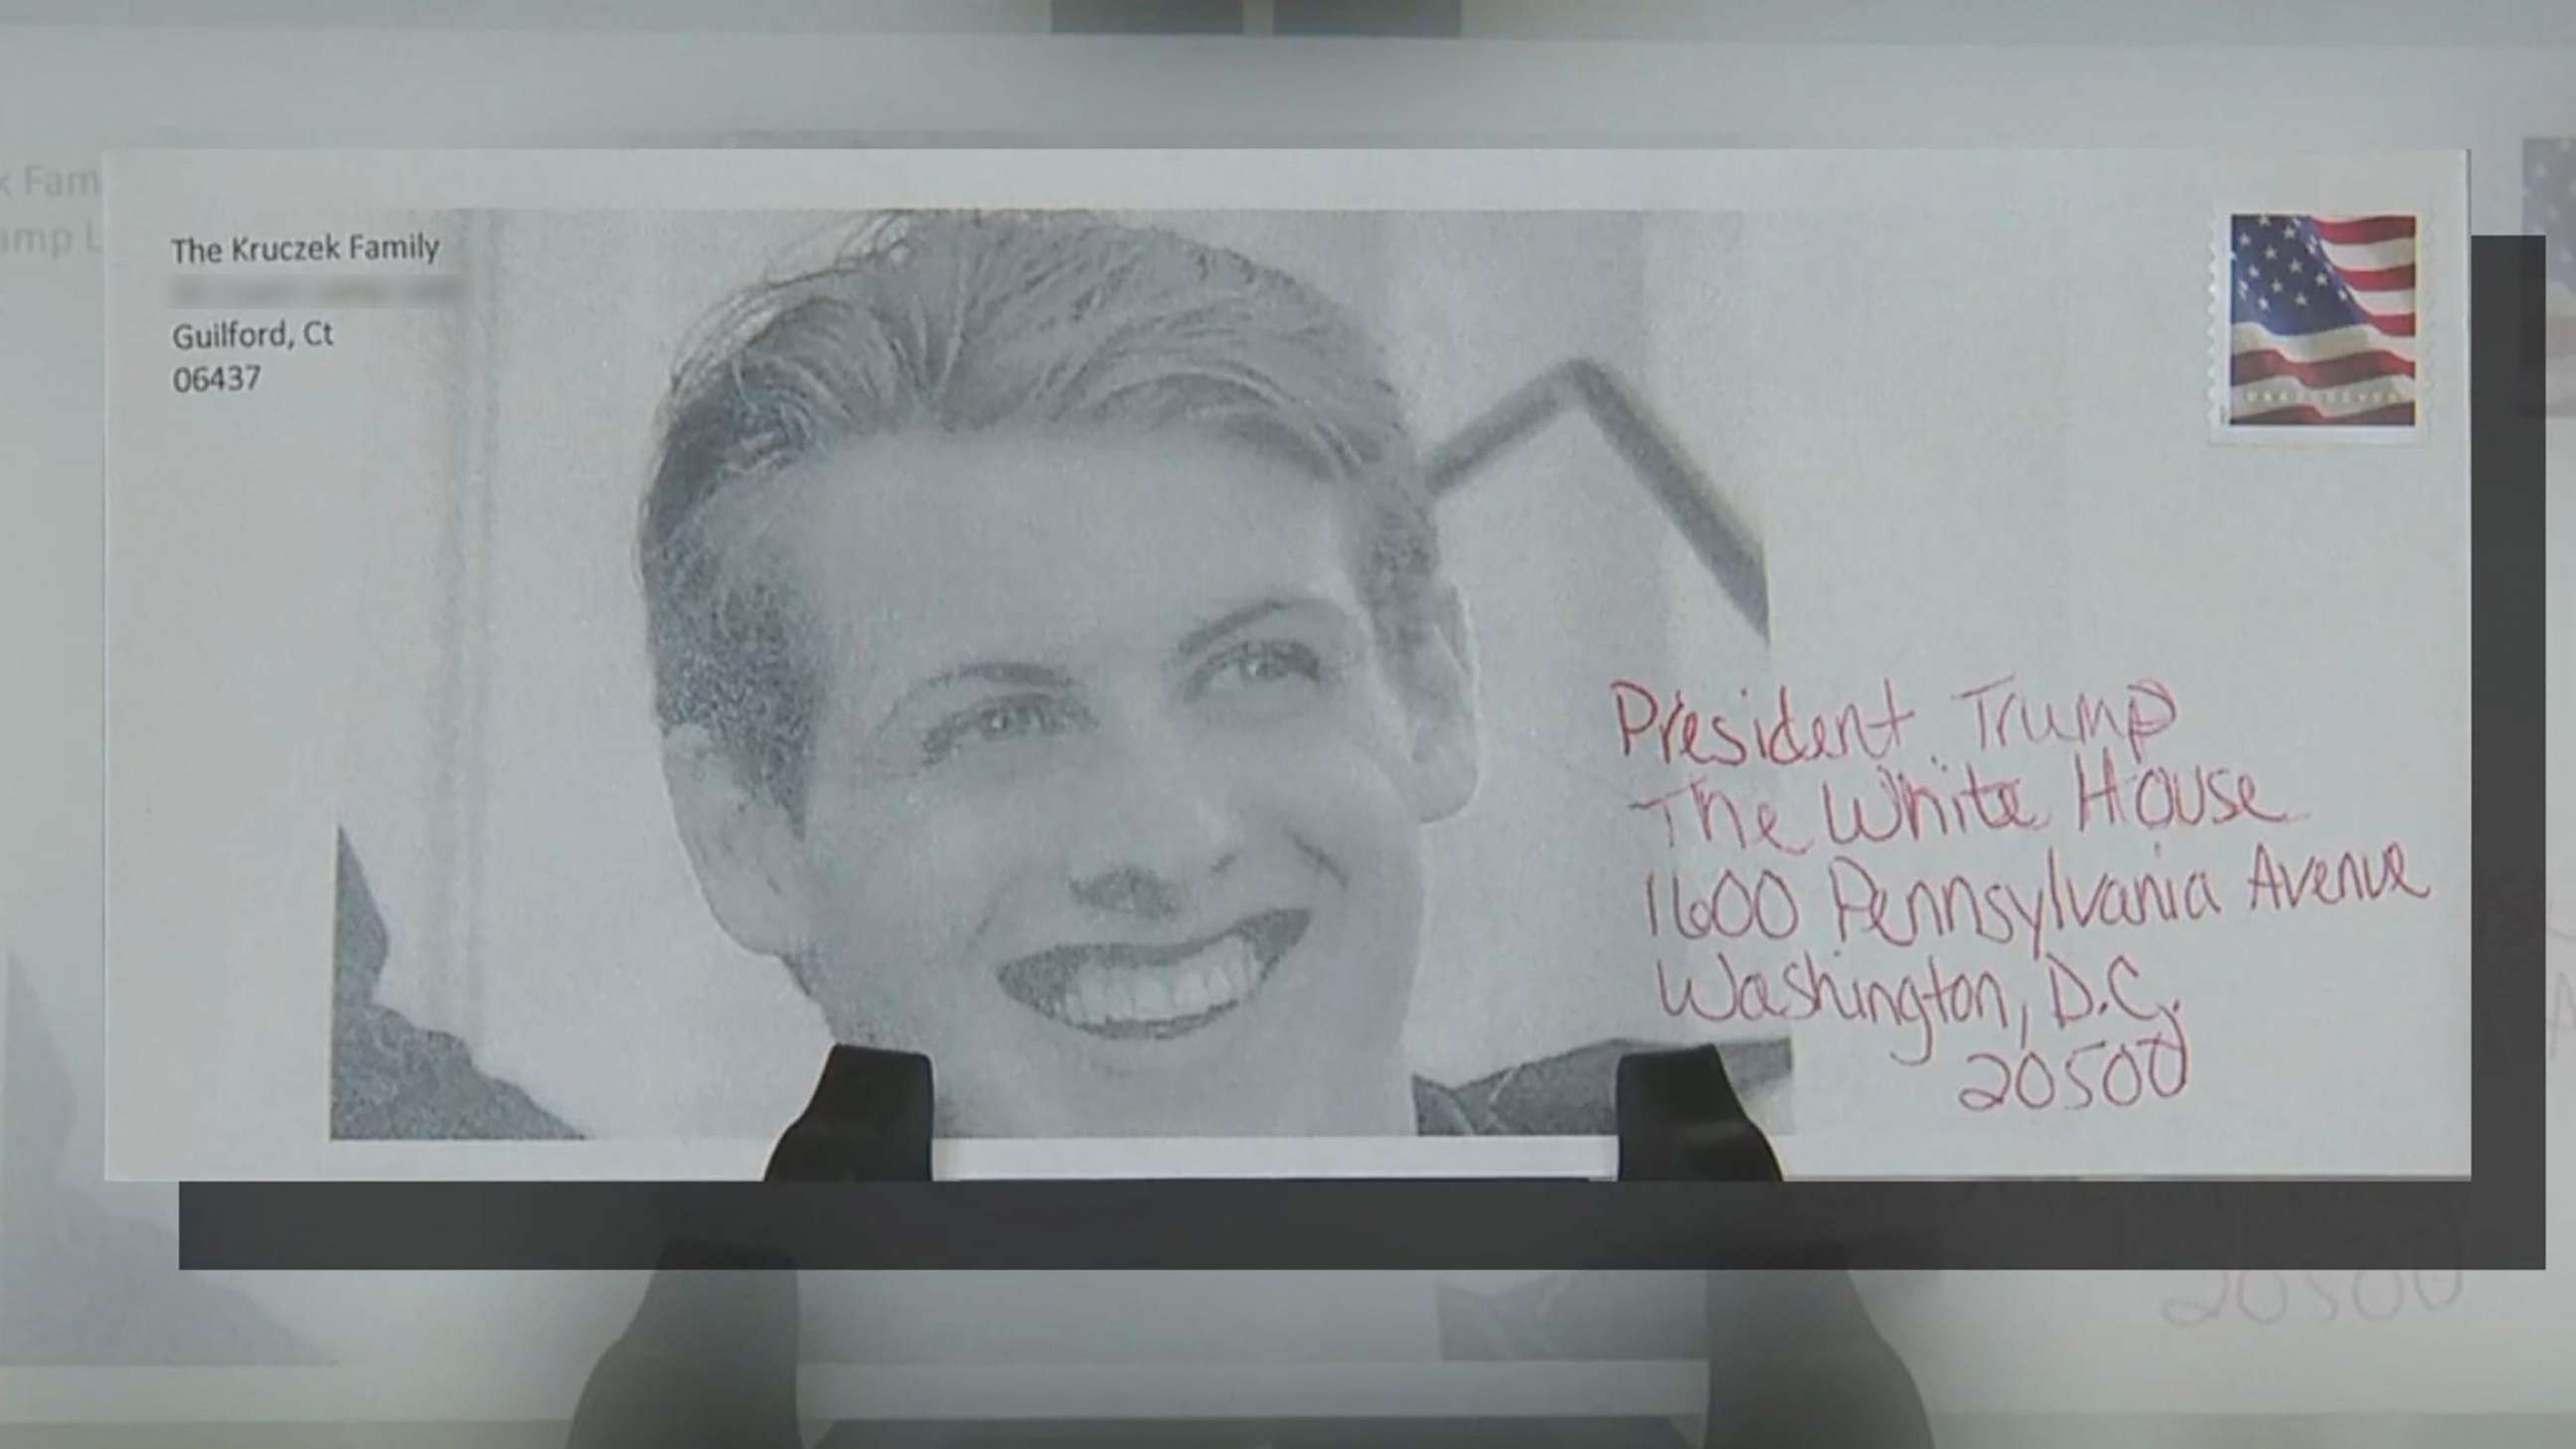 The Kruczek Family
Guilford, Ct
06437
President Trump
The White House
1600 Pennsylvania Avenue
Washington, D.C.
20500
k Fam
amp L
20500